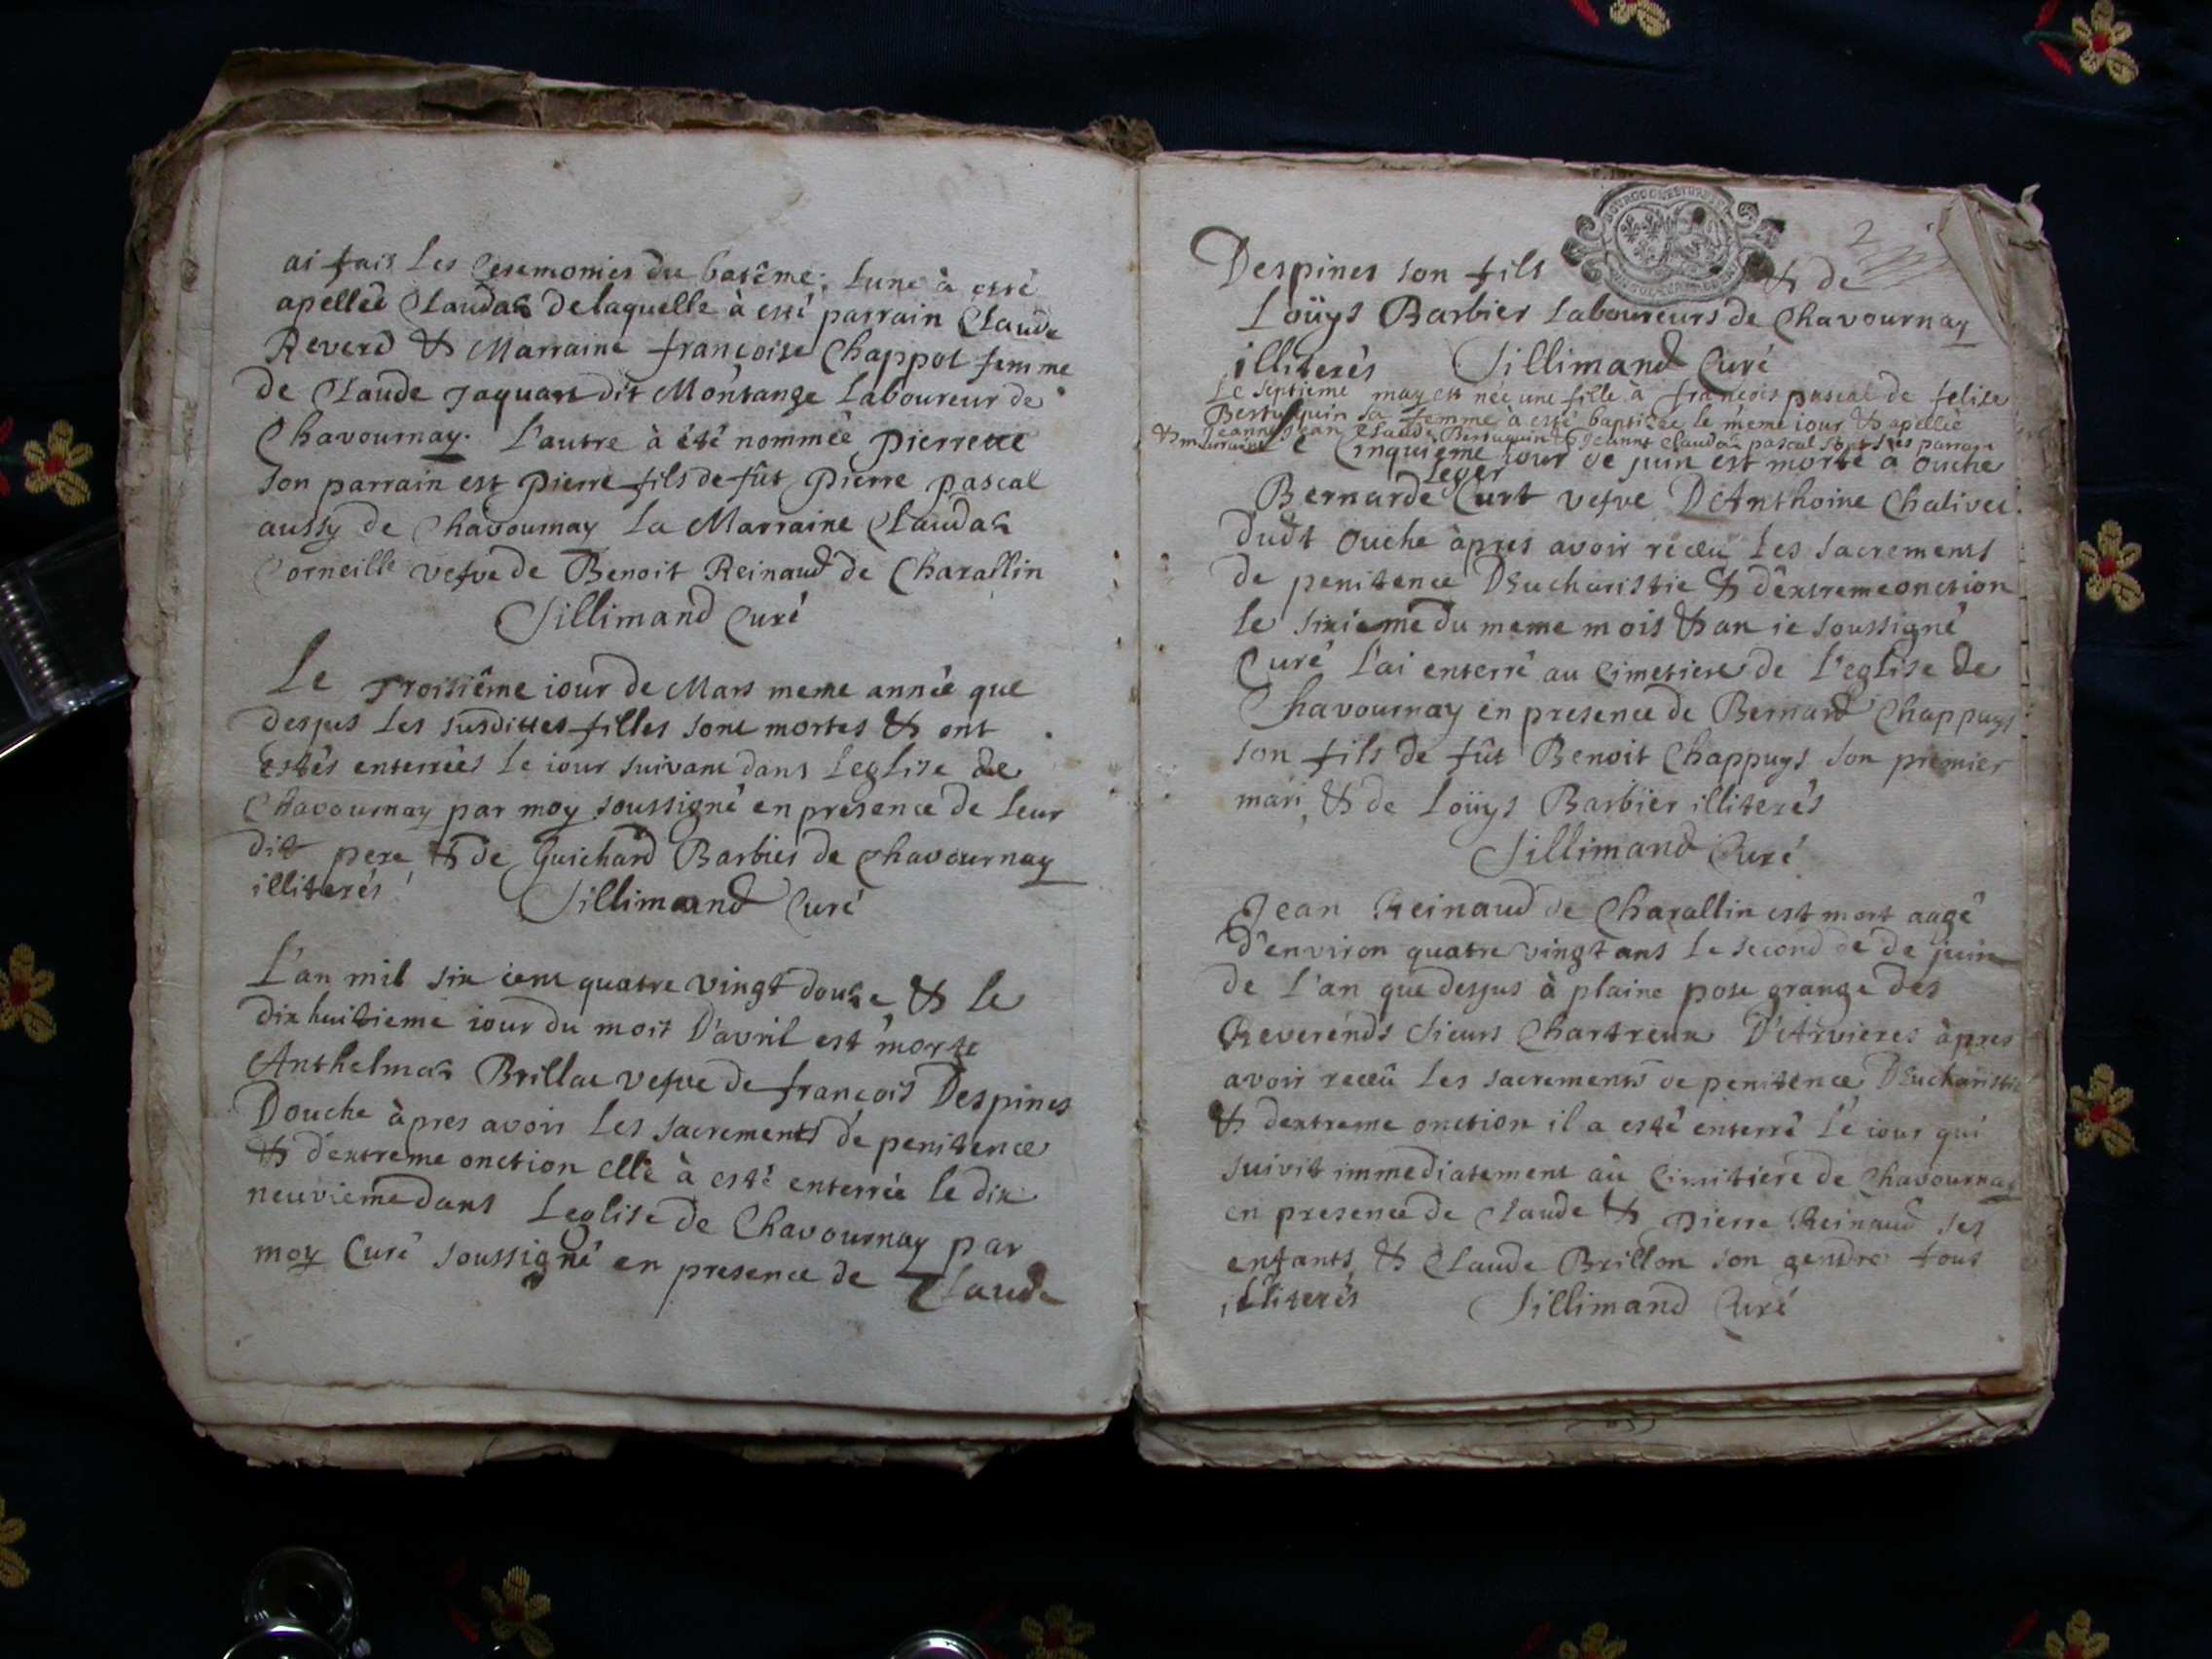 ai fais Les Ceremonies du batême; Lune à esté
apellée Claudaz delaquelle à esté parrain Claude
Reverd & Marraine françoise Chappot femme
de Claude Jaquart dit Montange Laboureur de
Chavournay. L'autre à été nommée pierrette
son parrain est pierre fils de fût pierre pascal
aussy de Chavournay La Marraine Claudaz
Corneille vefve de Benoit Reinaud de Charallin
Sillimand Curé
Le Troisiême iour de Mars meme année que
dessus Les susdittes filles sont mortes & ont
estés enterrées Le iour suivant dans Leglise de
Chavournay par moy soussigné en presence de Leur
dit pere & de Guichard Barbier de Chavournay
illiterés Sillimand Curé
L'an mil six cent quatre vingt douze & le
dix huitieme iour du mois D'avril est morte
Anthelmaz Brillat vefve de françois Despines
Douche àpres avoir Les sacrements de penitence
& d'extreme onction elle à esté enterrée le dix
neuvieme dans Leglise de Chavournay par
moy Curé soussigné en presence de Claude
Despines son fils & de
Loüys Barbier Laboureurs de Chavournay
illiterés Sillimand Curé
Le septieme may est née une fille à françois pascal de felise
Bertuquin sa femme à esté baptisée le même iour & apellée
Jeanne Jean Claude Bertuquin & Jeanne Claudaz pascal sont ses parrain
& marraine
Le Cinquieme iour de juin est morte a ouche
Leger
Bernarde Curt vefve D'Anthoine Chalivet
dudt Ouche àpres avoir receu Les sacrements
de penitence D'Eucharistie & d'extremeonction
le sixieme du meme mois & an ie soussigné
Curé L'ai enterré au Cimetiere de L'eglise de
Chavournay en presence de Bernard Chappuys
son fils de fût Benoit Chappuys son premier
mari, & de Loüys Barbier illiterés
Sillimand Curé
Jean Reinaud de Charallin est mort aagé
d'environ quatre vingt ans le second de de juin
de L'an que dessus à plaine pose grange des
Reverends Sieurs Chartreux D'Arvieres àpres
avoir receû Les sacrements de penitence D'Eucharistie
& dextreme onction il a esté enterré Le iour qui
suivit immediatement aû Cimitiere de Chavournay
en presence de Claude & pierre Reinaud ses
enfants & Claude Brillon son gendre tous
illiterés Sillimand Curé